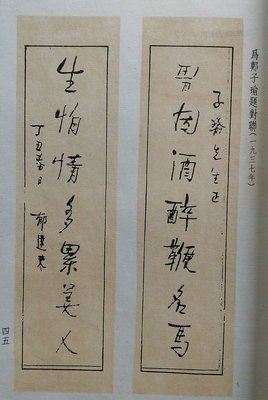 為鄭子瑜題對聯(一九三七年)
子瑜先生正
曾因酒醉鞭名馬
生怕情多累美人
丁丑春日
郁達夫
四五